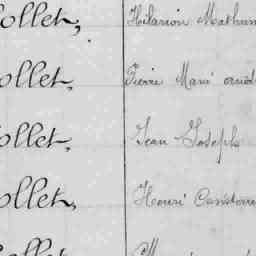 ollet, Hilarion Mathurin
ollet, Pierre Marie
ollet, Jean Joseph
ollet, Henri
ollet